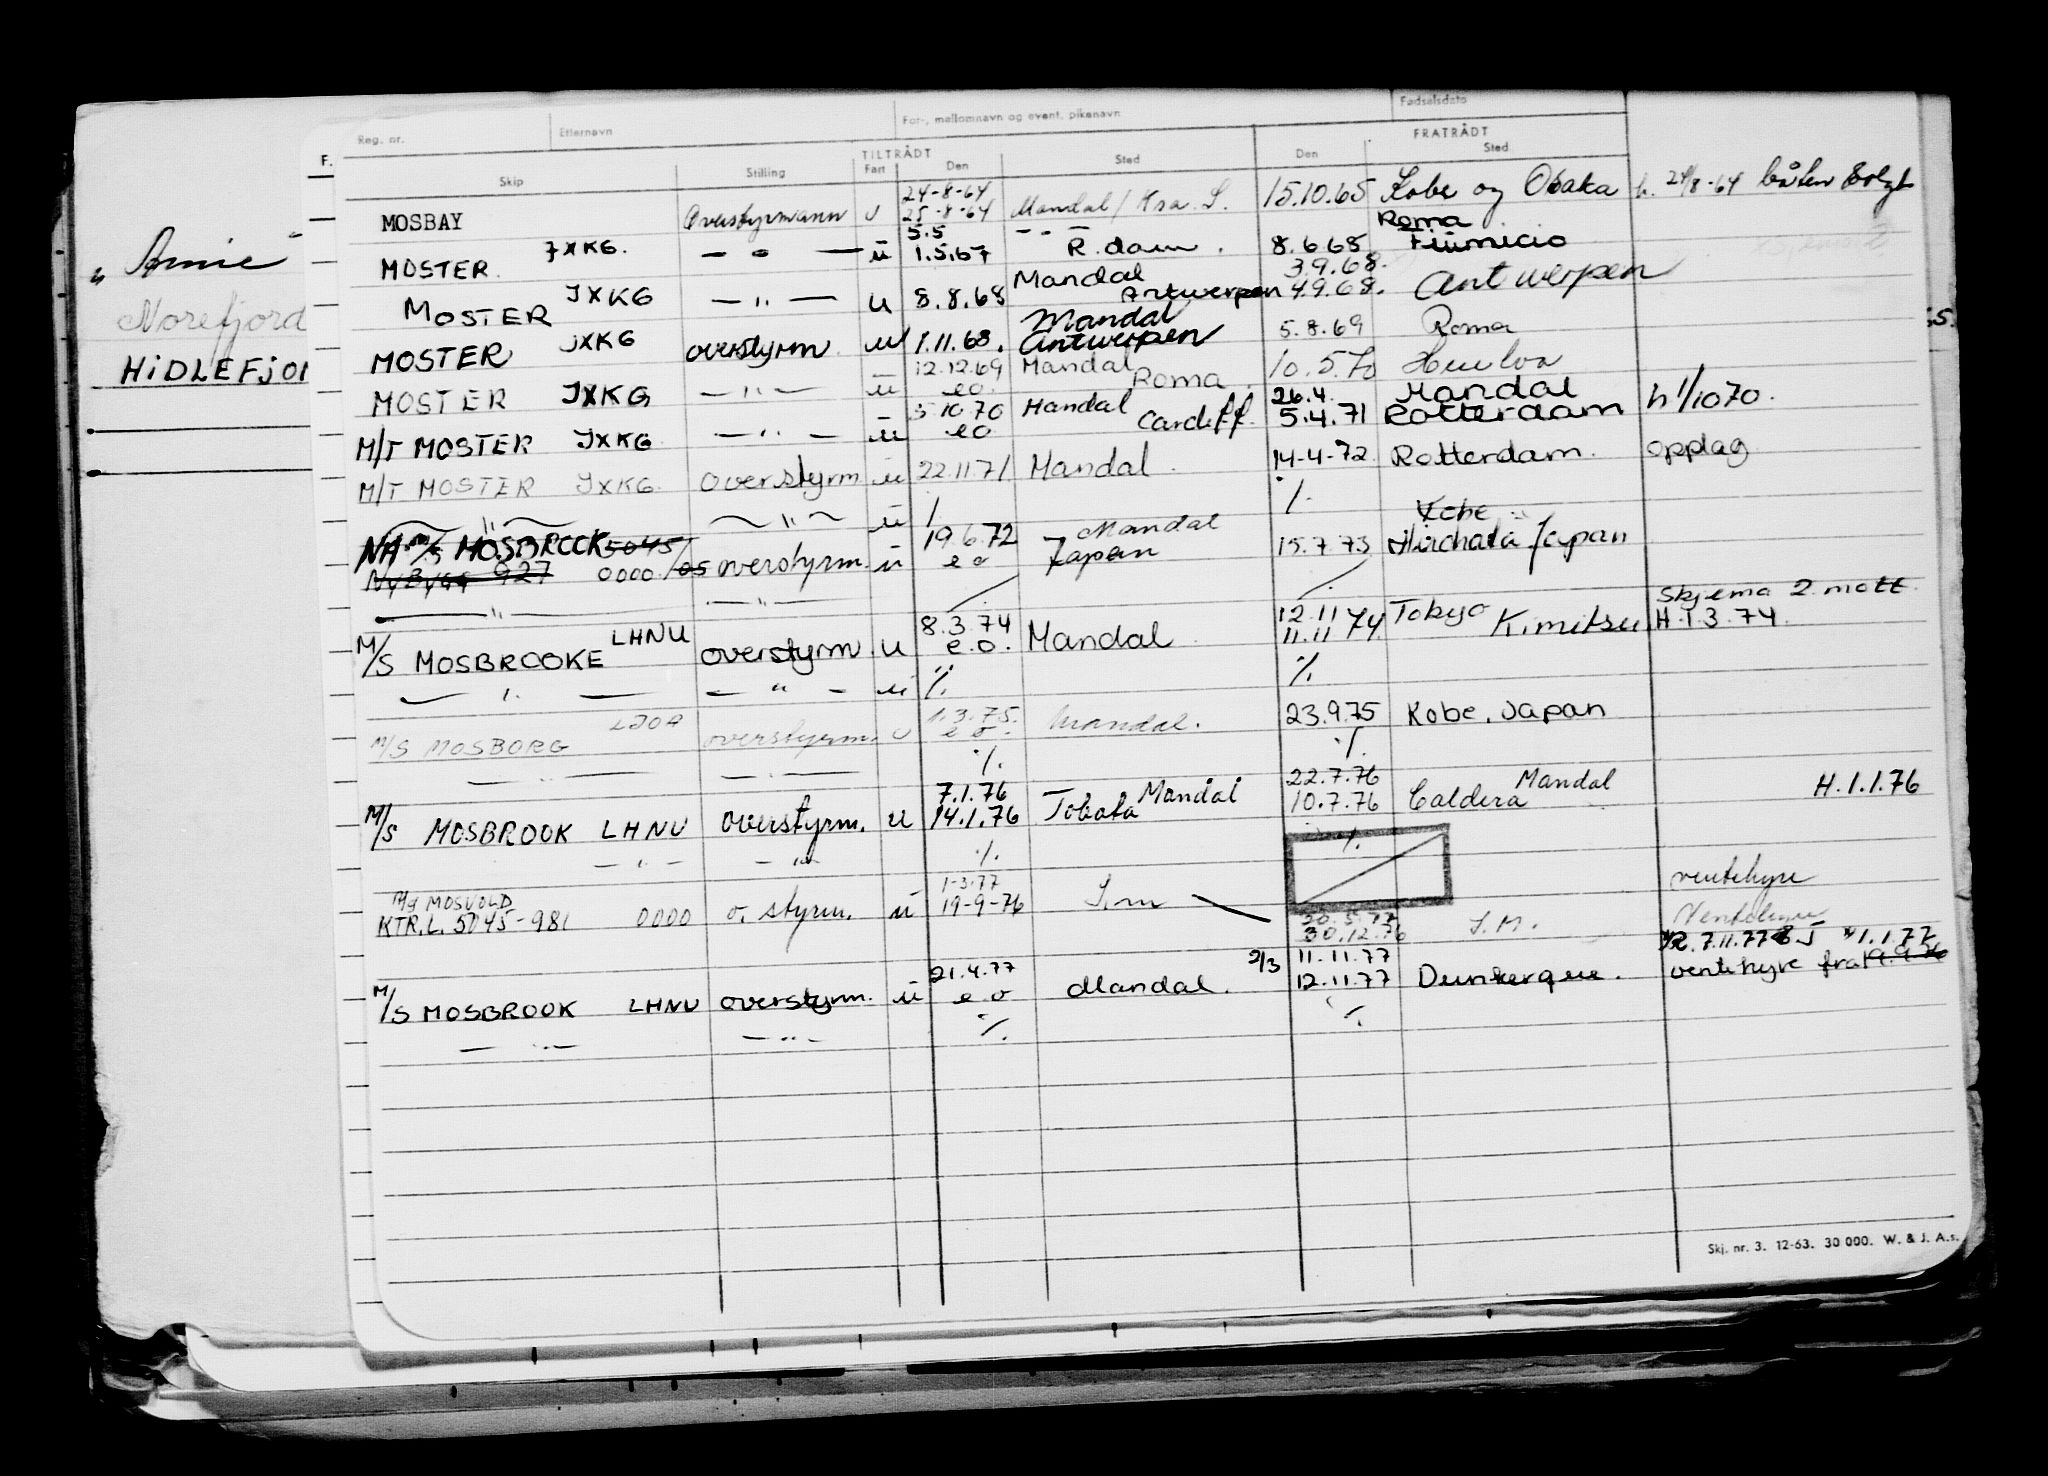 Reg. nr. Etternavn For-, mellomnavn og event. pikenavn Fødselsdato
F. TILTRÅDT FRATRÅDT
Skip Stilling Fart Den Sted Den Sted
24-8-64
MOSBAY Overstyrmann u 25-8-64 Mandal / Kra. S. 15.10.65 Kobe og Osaka h. 24/8-64 båten solgt
5.5 Roma
MOSTER JXKG. — " — u 1.5.67 R.dam. 8.6.68 Fiumicio
Mandal 3.9.68.
MOSTER JXKG — " — u 8.8.68 Antwerpen 4.9.68. Antwerpen
Mandal
MOSTER JXKG overstyrm. u 1.11.68. Antwerpen 5.8.69 Roma
12.12.69 Mandal
MOSTER JXKG — " — u eo. Roma. 10.5.70 Huelva
5.10.70 Mandal 26.4. Mandal
M/T MOSTER JXKG — " — u eo Cardiff. 5.4.71 Rotterdam h 1/10 70.
M/T MOSTER JXKG. overstyrm u 22.11.71 Mandal. 14-4-72 Rotterdam. opplag
— " — — " — u / ./.
NA. M/S MOSBROOK 5045/ 19.6.72 Mandal Kobe
NYBYGG 927 0000/05 overstyrm. u eo Japan 15.7.73 Hirohata Japan
— " — — " — ./. ./. skjema 2 mott.
8.3.74 12.11
M/S MOSBROOKE LHNU overstyrm. u e.o. Mandal 11.11 74 Tokyo Kimitsu H.1.3.74.
— " — — " — u ./. ./.
1.3.75.
M/S MOSBORG overstyrm. u e o. Mandal. 23.9.75 Kobe, Japan
— " — — " — ./. ./.
7.1.76 Mandal 22.7.76 Mandal
M/S MOSBROOK LHNU overstyrm. u 14.1.76 Tobata 10.7.76 Caldera H.1.1.76
— " — — " — ./. ./.
M/S MOSVOLD 1-3-77 ventehyre
KTR.L. 5045-981 0000 o. styrm. u 19-9-76 S.m 20.5.77 S.M. Ventehyre
30.12.76
21.4.77 2/3 11.11.77 7.11.77 1.1.77
M/S MOSBROOK LHNU overstyrm. u e o Mandal. 12.11.77 Dunkerque. ventehyre fra 19.9.76
— " — — " — ./. ./.
" Annie "
Norefjord
HIDLEFJOR
Skj. nr. 3. 12-63. 30 000. W. & J. A.s.